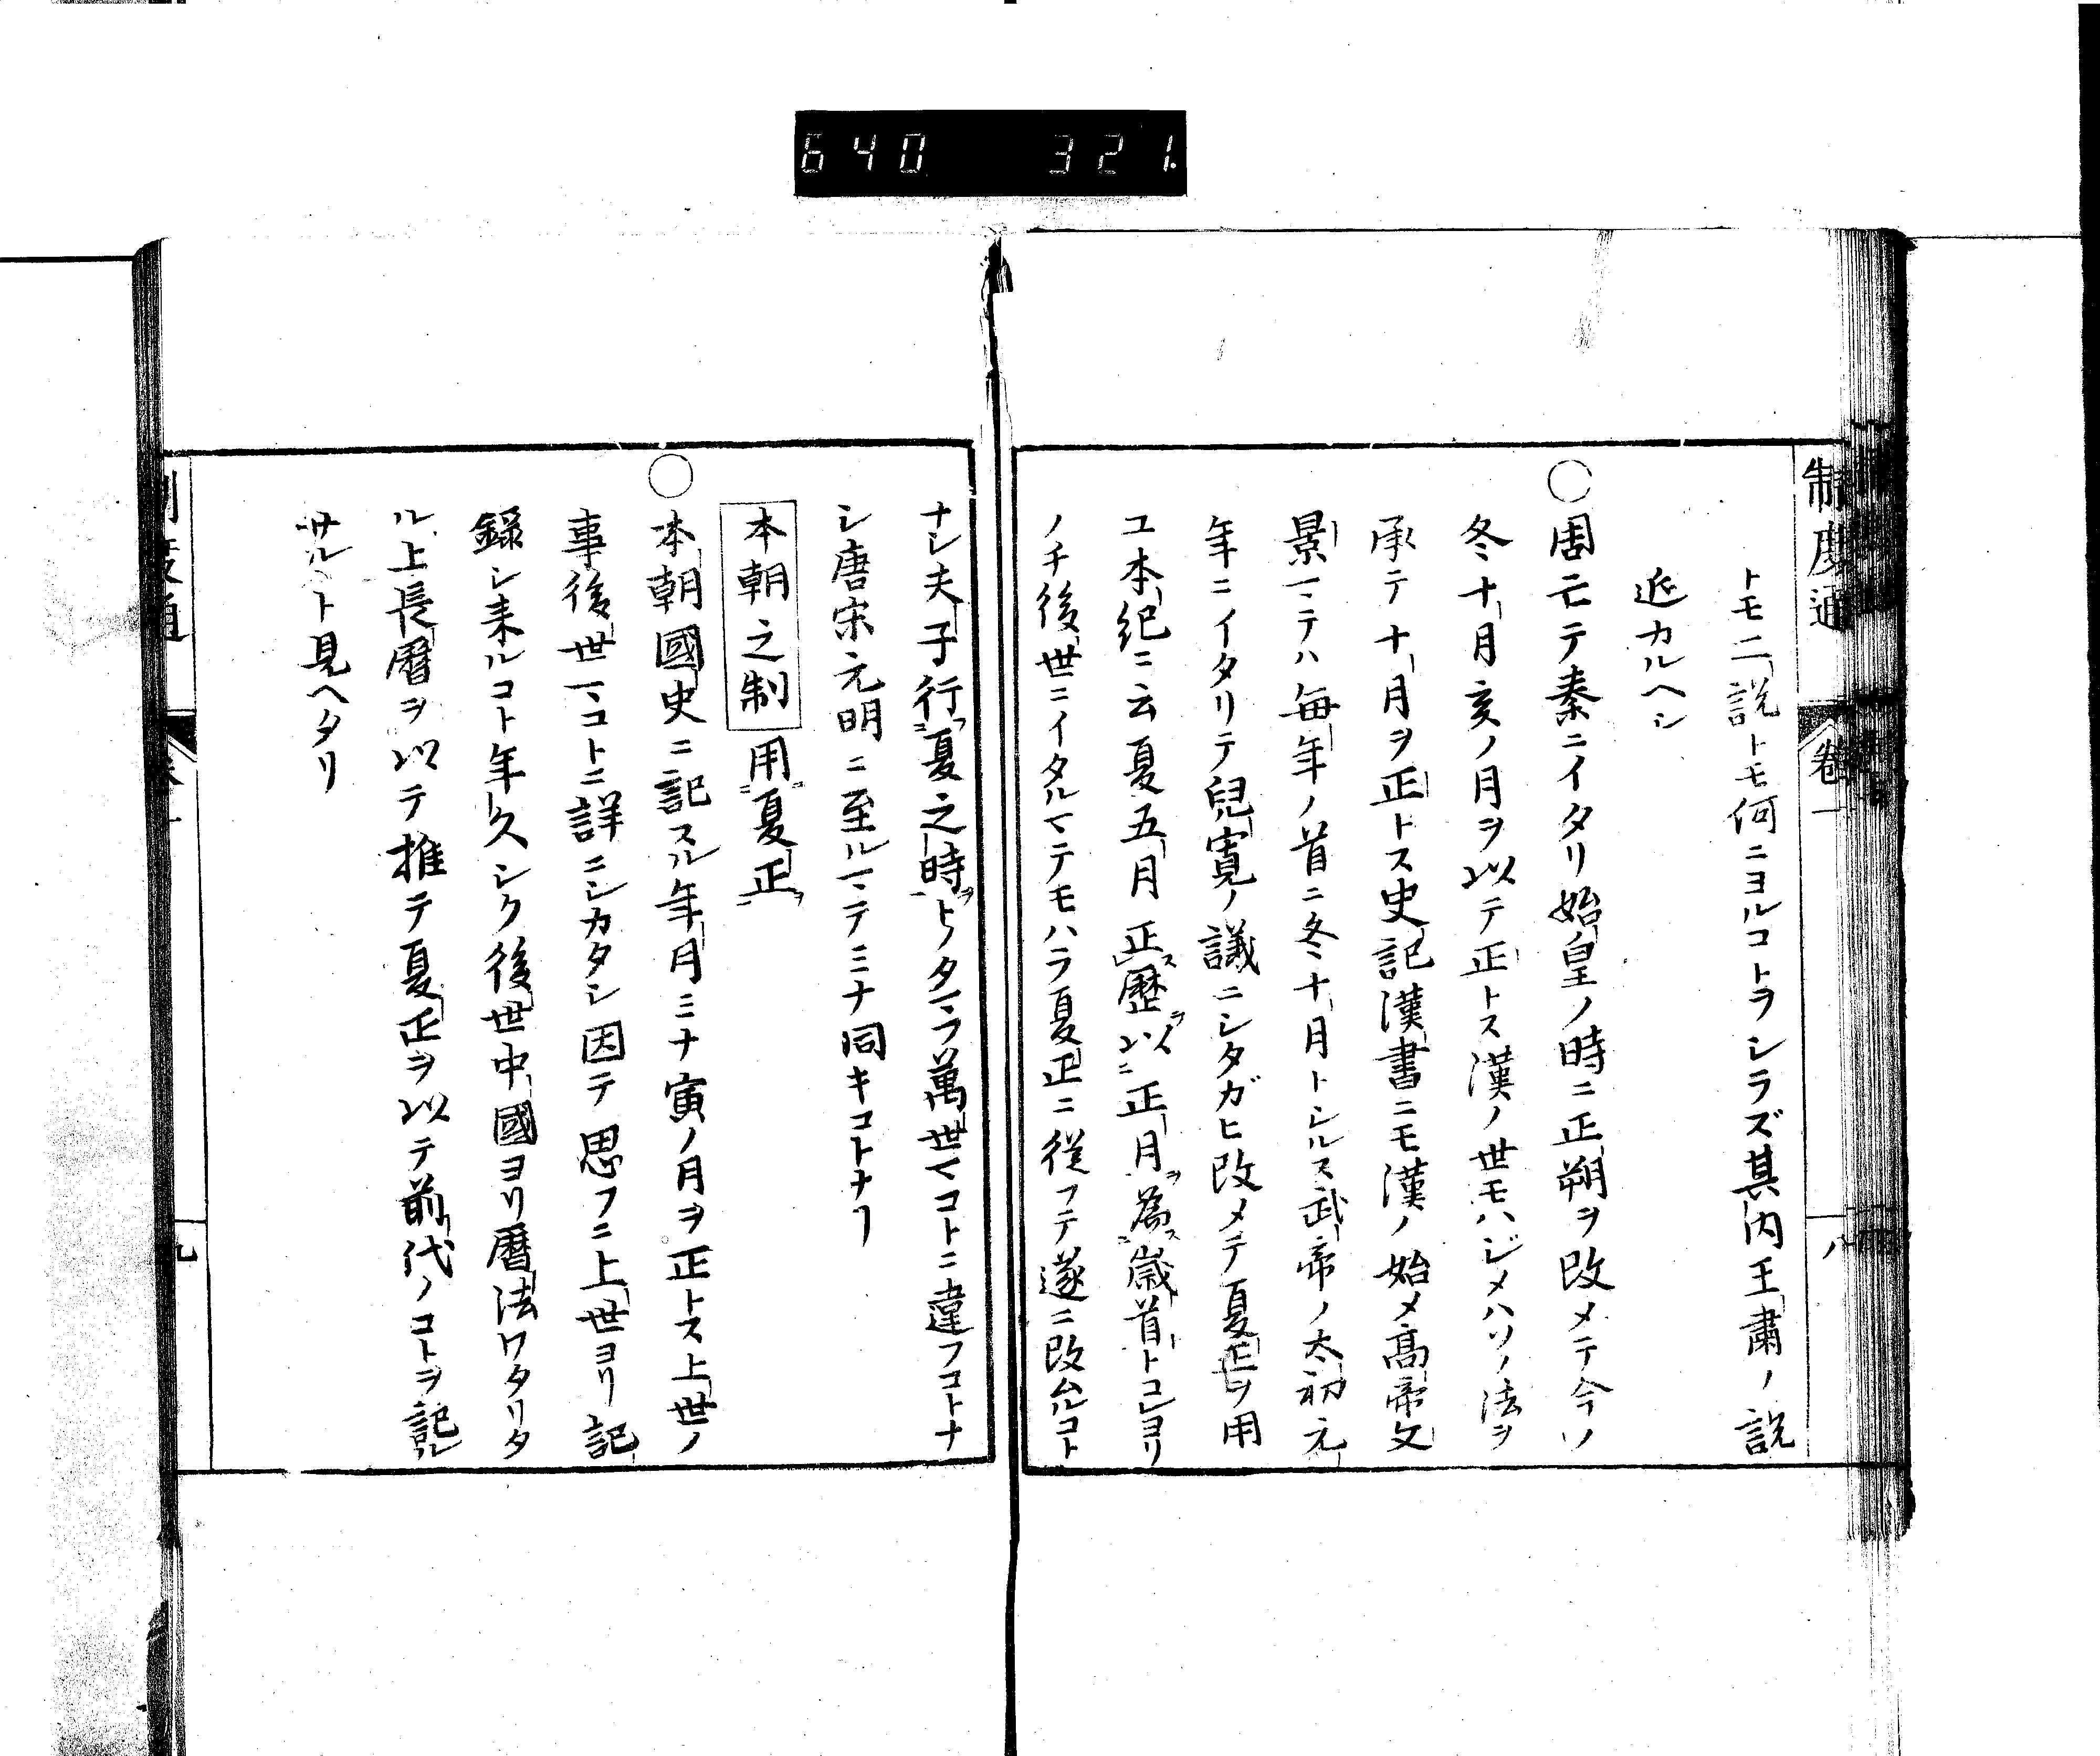 640 321.
制度通 卷一 八
トモ二説トモ何ニヨルコトヲシラズ其内王肅ノ説
近カルヘシ
○周亡テ秦ニイタリ始皇ノ時ニ正朔ヲ改メテ今ノ
冬十月亥ノ月ヲ以テ正トス漢ノ世モハジメハソノ法ヲ
承テ十月ヲ正トス史記漢書ニモ漢ノ始メ髙帝文
景マテハ毎年ノ首ニ冬十月トシルス武帝ノ太初元
年ニイタリテ兒寬ノ議ニシタガヒ改メテ夏正ヲ用
ユ本紀ニ云夏五月正歷以正月為歳首トコレヨリ
ノチ後世ニイタルマテモハラ夏正ニ從フテ遂ニ改ムルコト
ナシ夫子行夏之時トノタマフ萬世マコトニ違フコトナ
シ唐宋元明ニ至ルマテミナ同キコトナリ
本朝之制 用夏正
○本朝國史ニ記スル年月ミナ寅ノ月ヲ正トス上世ノ
事後世マコトニ詳ニシカタシ因テ思フニ上世ヨリ記
錄シ来ルコト年久シク後世中國ヨリ曆法ワタリタ
ル上長曆ヲ以テ推テ夏正ヲ以テ前代ノコトヲ記
サルト見ヘタリ
制度通 卷一 九